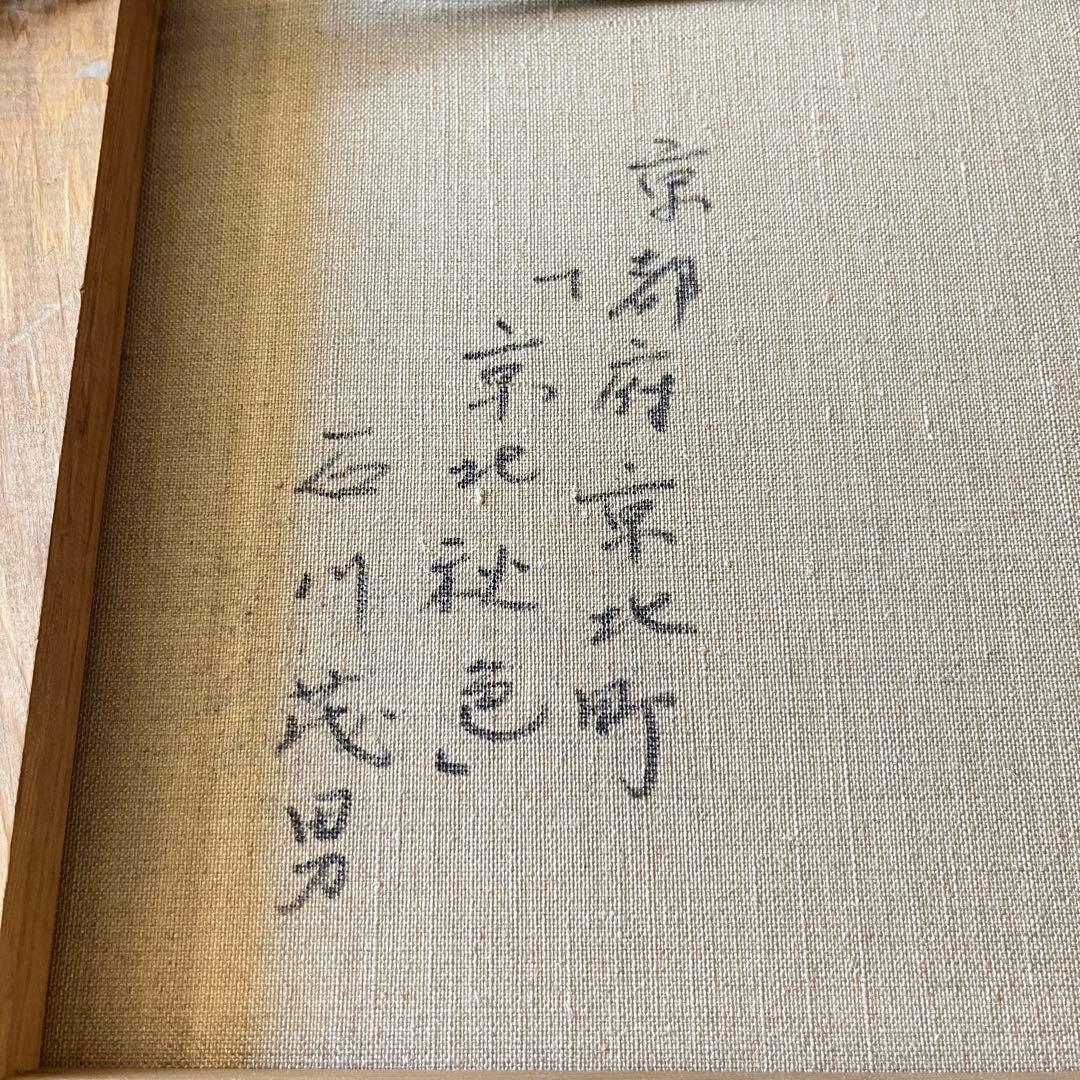 京都府京北町
「京北秋色」
石川茂男